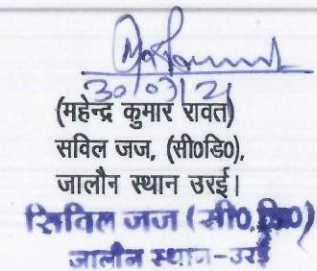 30/07/21
(महेन्द्र कुमार रावत)
सविल जज, (सी0डि0),
जालौन स्थान उरई।
सिविल जज (सी0 डि0)
जालौन स्थान-उरई